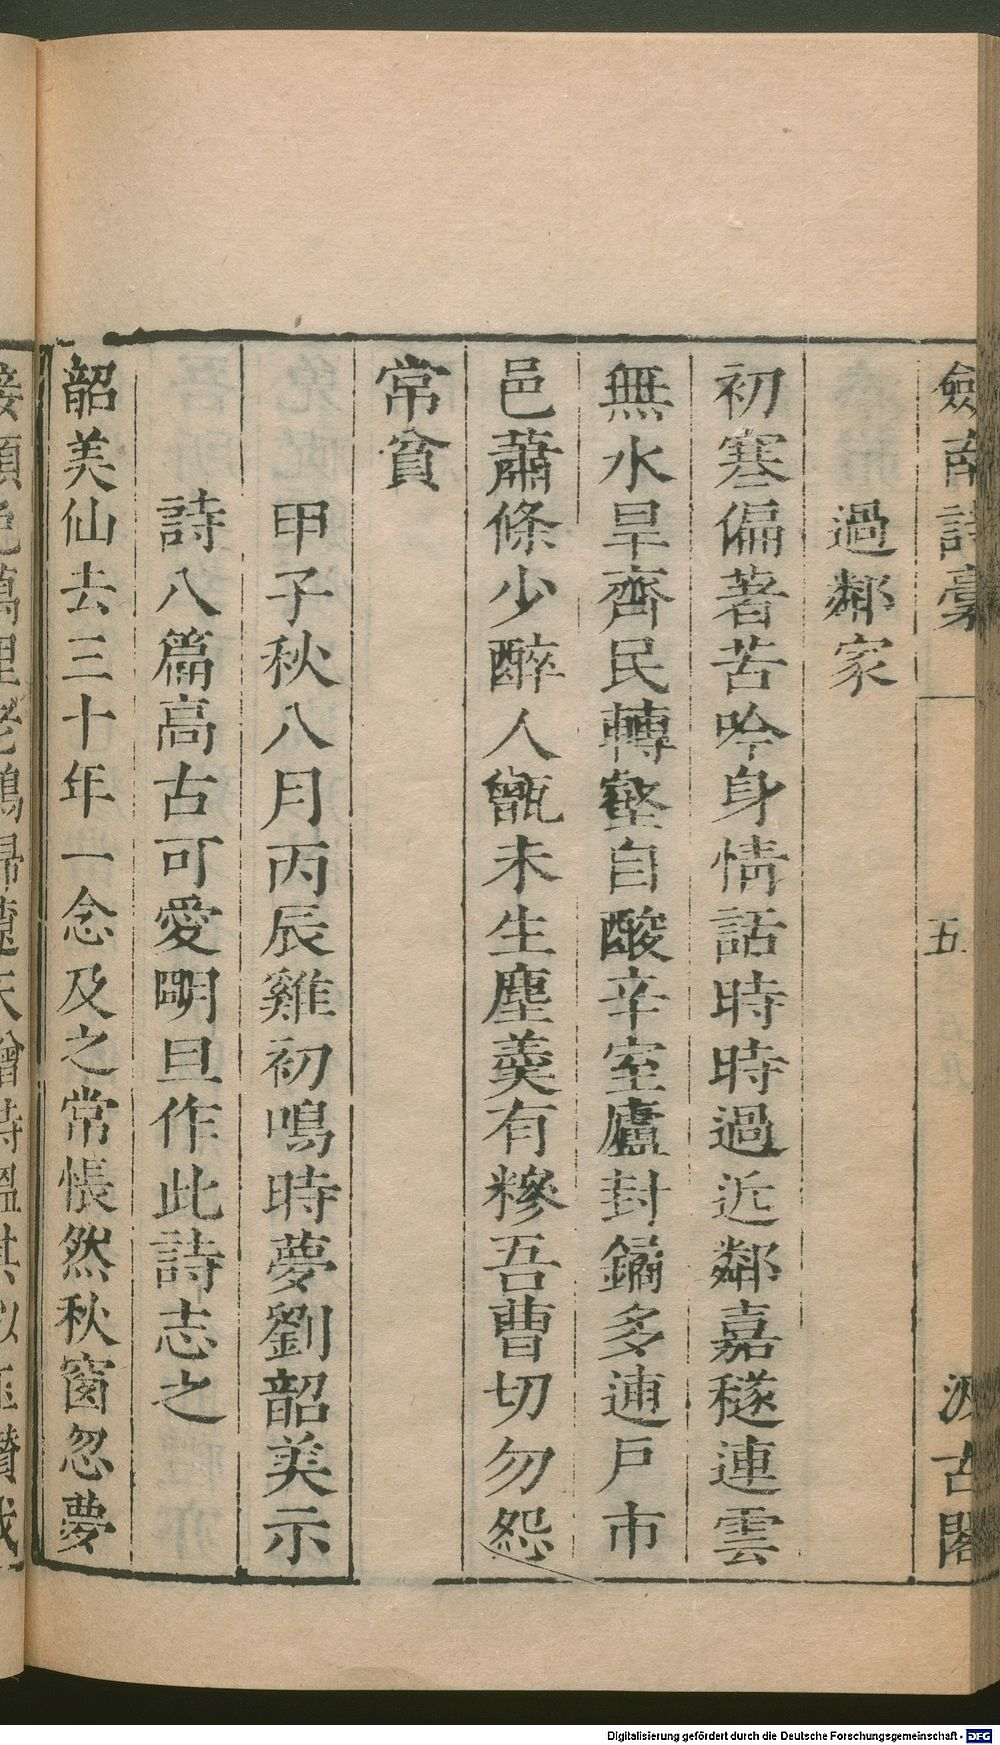 劍南詩稾
五
汲古閣
過鄰家
初寒偏著苦吟身情話時時過近鄰嘉穟連雲
無水旱齊民轉壑自酸辛室廬封鐍多逋戶市
邑蕭條少醉人甑未生塵羹有糝吾曹切勿怨
常貧
甲子秋八月丙辰雞初鳴時夢劉韶美示
詩八篇高古可愛明旦作此詩志之
韶美仙去三十年一念及之常悵然秋窗忽夢
Digitalisierung gefördert durch die Deutsche Forschungsgemeinschaft - DFG